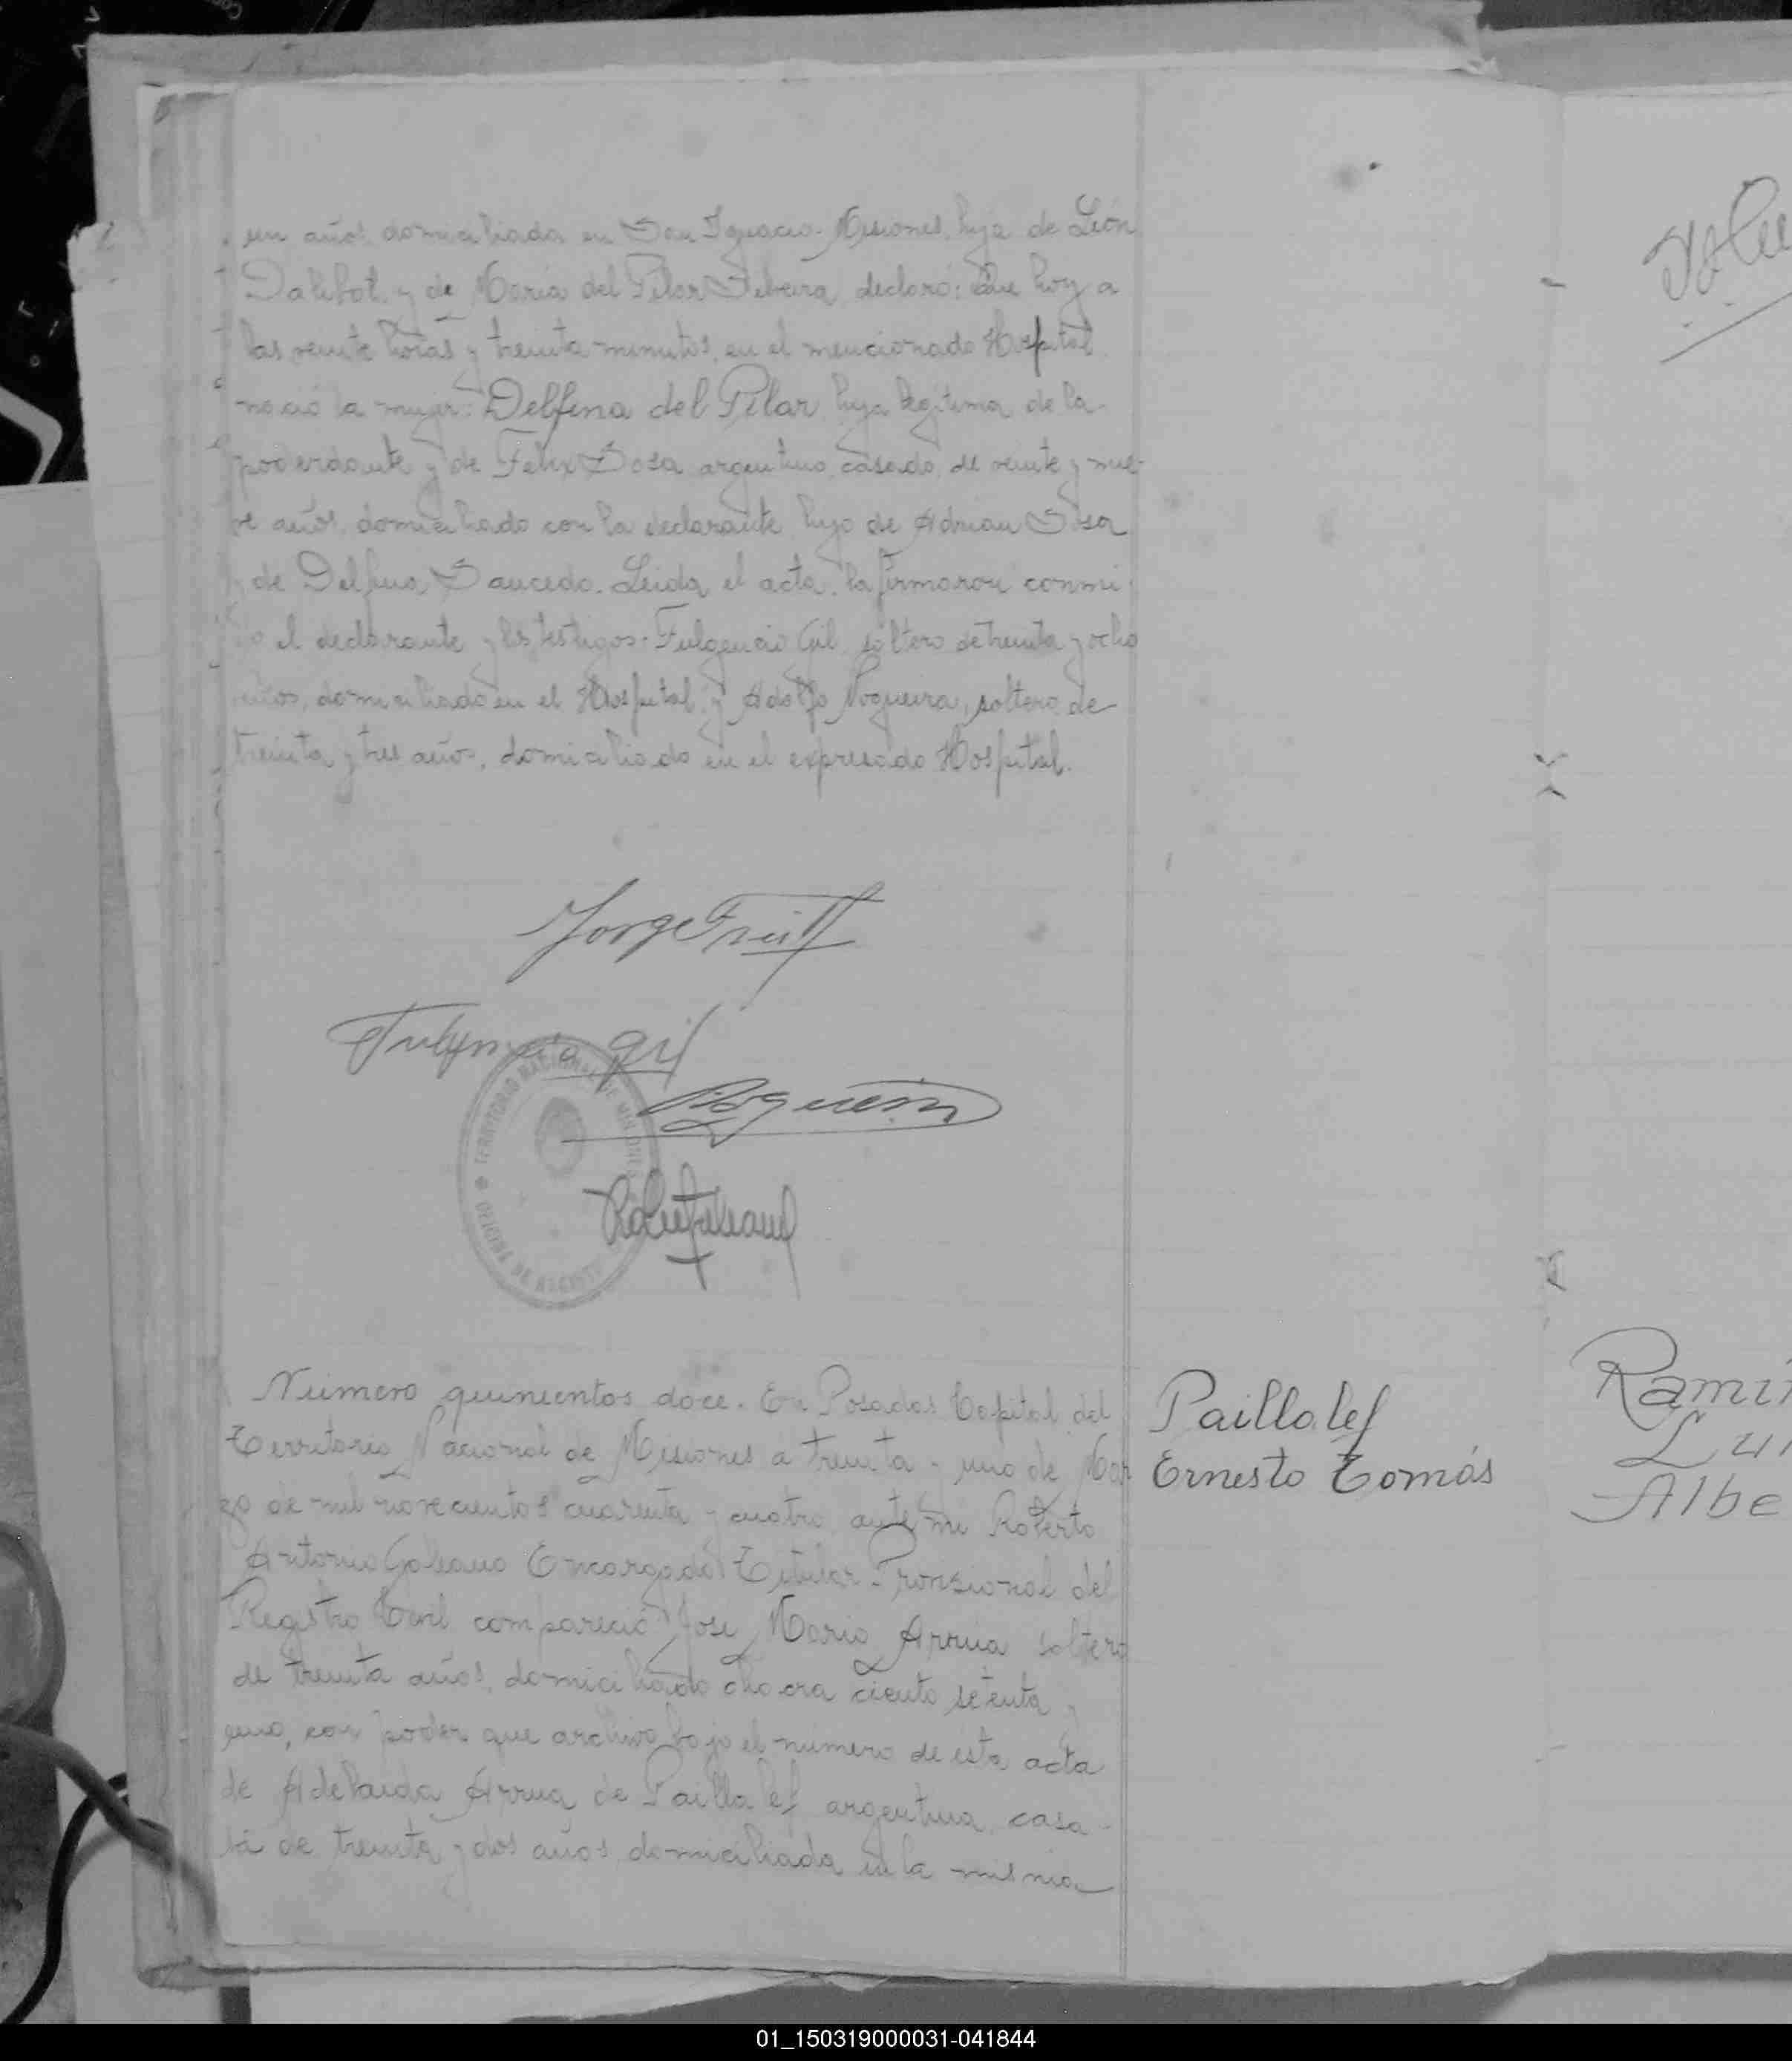 un años, domiciliada en San Ignacio-Misiones, hija de León
Dalibot y de María del Pilar Silveira, declaró: Que hoy a
las veinte horas y treinta minutos, en el mencionado Hospital
nació la mujer: Delfina del Pilar, hija legitima de la
poderdante y de Felix Sosa argentino, casado, de veinte y nue-
ve años, domiciliado con la declarante, hijo de Adrian Sosa
y de Delfina Saucedo. Leida el acta, la firmaron conmi
go el declarante y los testigos: Fulgencio Gil, soltero de treinta y ocho
años, domiciliado en el Hospital y Adolfo Nogueira, soltero de
treinta y tres años, domiciliado en el expresado Hospital.
Jorge
Fulgencio gil
Nogueira
TERRITORIO NACIONAL DE MISIONES
Numero quinientos doce. En Posadas Capital del
Territorio Nacional de Misiones a treinta y uno de Mar
zo de mil novecientos cuarenta y cuatro, ante mi Roberto
Antonio Galeano Encargado Titular Provisional del
Registro Civil compareció José Maria Arrua soltero
de treinta años, domiciliado chacra ciento setenta y
uno, con poder que archivo bajo el número de esta acta
de Adelaida Arrua de Paillalef argentina, casa-
da de treinta y dos años, domiciliada en la misma
Paillalef
Ernesto Tomás
Rami
Lui
Albe